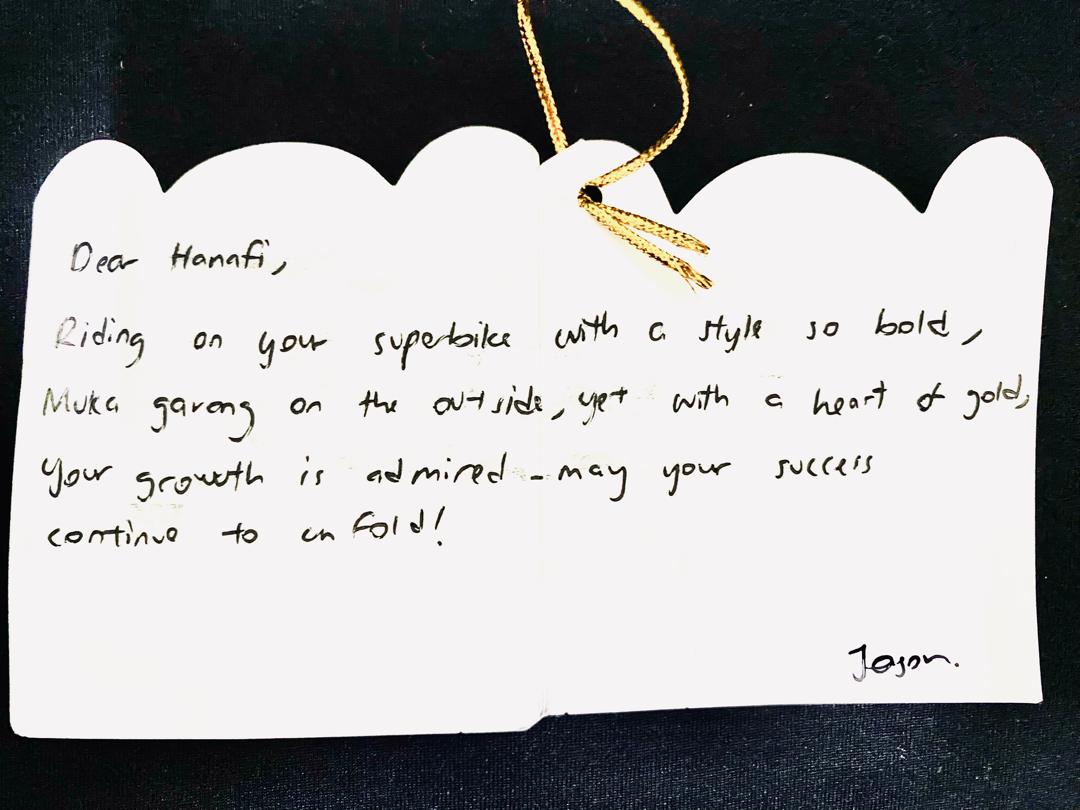 Dear Hanafi,
Riding on your superbike with a style so bold,
Muka garang on the outside, yet with a heart of gold,
Your growth is admired - may your success
continue to unfold!
Jason.